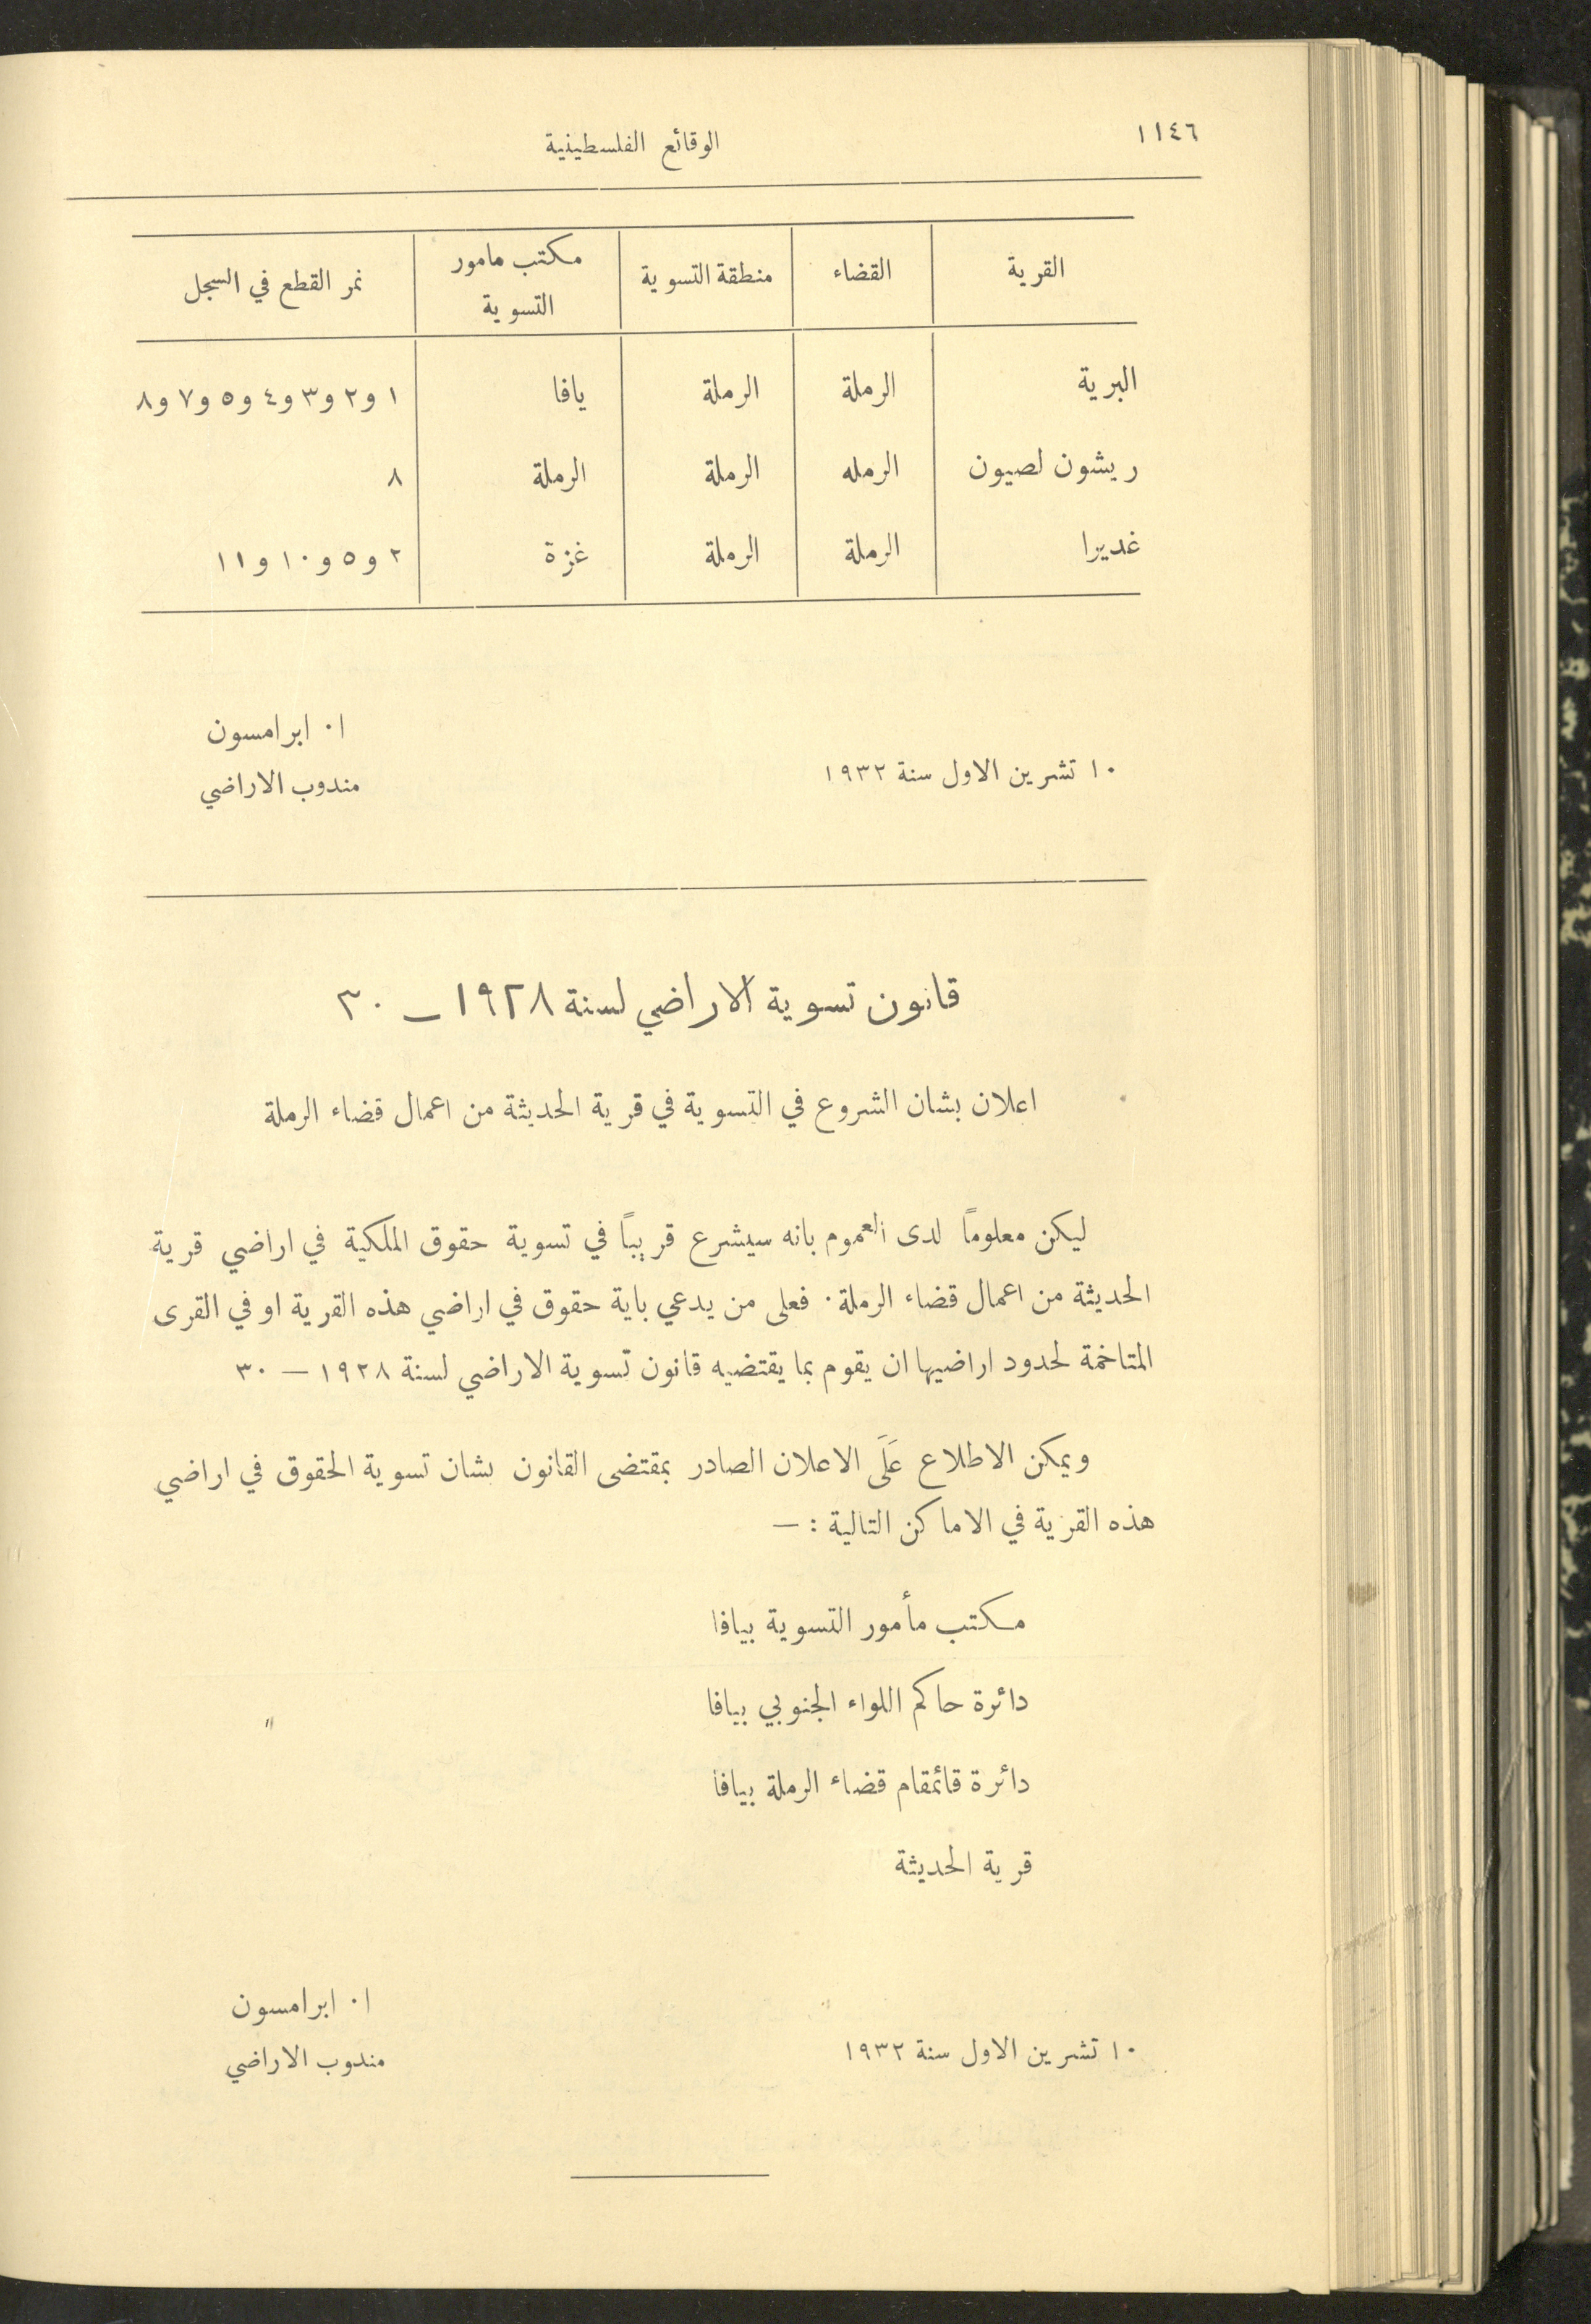 ١١٤٦
الوقائع الفلسطينية
القرية | القضاء | منطقة التسوية | مكتب مامور التسوية | نمر القطع في السجل
البرية | الرملة | الرملة | يافا | ١ و٢ و٣ و٤ و٥ و٧ و٨
ريشون لصيون | الرمله | الرملة | الرملة | ٨
غديرا | الرملة | الرملة | غزة | ٢ و٥ و١٠ و١١
ا٠ ابرامسون
١٠ تشرين الاول سنة ١٩٣٢
مندوب الاراضي
قانون تسوية الاراضي لسنة ١٩٢٨ – ٣٠
اعلان بشان الشروع في التسوية في قرية الحديثة من اعمال قضاء الرملة
ليكن معلوماً لدى العموم بانه سيشرع قريباً في تسوية حقوق الملكية في اراضي قرية
الحديثة من اعمال قضاء الرملة٠ فعلى من يدعي باية حقوق في اراضي هذه القرية او في القرى
المتاخمة لحدود اراضيها ان يقوم بما يقتضيه قانون تسوية الاراضي لسنة ١٩٢٨ – ٣٠
ويمكن الاطلاع عَلَى الاعلان الصادر بمقتضى القانون بشان تسوية الحقوق في اراضي
هذه القرية في الاماكن التالية : –
مكتب مأمور التسوية بيافا
دائرة حاكم اللواء الجنوبي بيافا
دائرة قائمقام قضاء الرملة بيافا
قرية الحديثة
ا٠ ابرامسون
١٠ تشرين الاول سنة ١٩٣٢
مندوب الاراضي